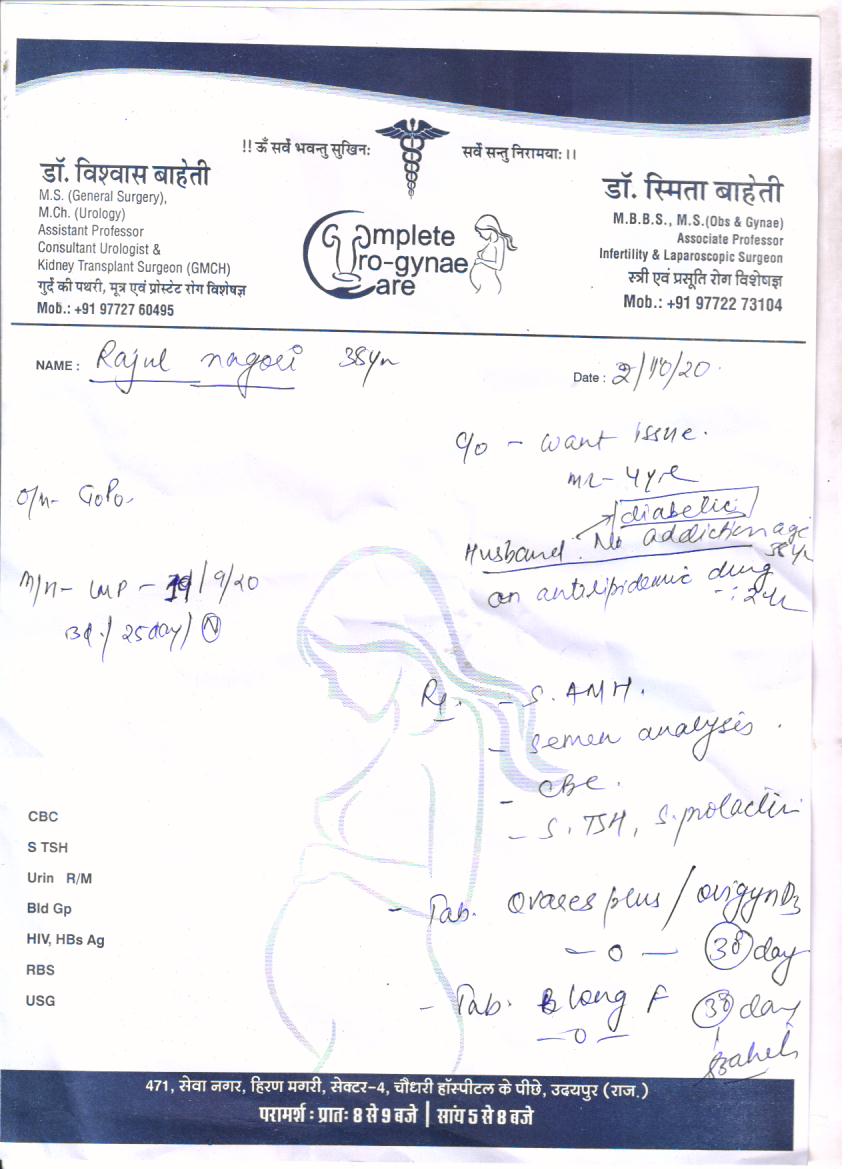 !! ॐ सर्वे भवन्तु सुखिनः
सर्वे सन्तु निरामयाः ।।
डॉ. विश्वास बाहेती
M.S. (General Surgery),
M.Ch. (Urology)
Assistant Professor
Consultant Urologist &
Kidney Transplant Surgeon (GMCH)
गुर्दे की पथरी, मूत्र एवं प्रोस्टेट रोग विशेषज्ञ
Mob.: +91 97727 60495
Complete
Uro-gynae
Care
डॉ. स्मिता बाहेती
M.B.B.S., M.S.(Obs & Gynae)
Associate Professor
Infertility & Laparoscopic Surgeon
स्त्री एवं प्रसूति रोग विशेषज्ञ
Mob.: +91 97722 73104
NAME : Rajul nagori 38yr
Date : 2/10/20
c/o - want issue.
O/H- G0P0
diabetic
Husband. No addiction age 38yr
on antilipidemic drug
M/H- LMP - 19/9/20
25day/ N
Rx. - S. AMH.
- Semen analysis.
- CBC.
- S. TSH, S. prolactin
CBC
S TSH
Urin R/M
Bld Gp
HIV, HBs Ag
RBS
USG
- Tab. Ovares plus / ovigyn D3
— 0 — 30 day
- Tab. B long F 30 day
— 0 —
471, सेवा नगर, हिरण मगरी, सेक्टर-4, चौधरी हॉस्पीटल के पीछे, उदयपुर (राज.)
परामर्श : प्रातः 8 से 9 बजे | सांय 5 से 8 बजे